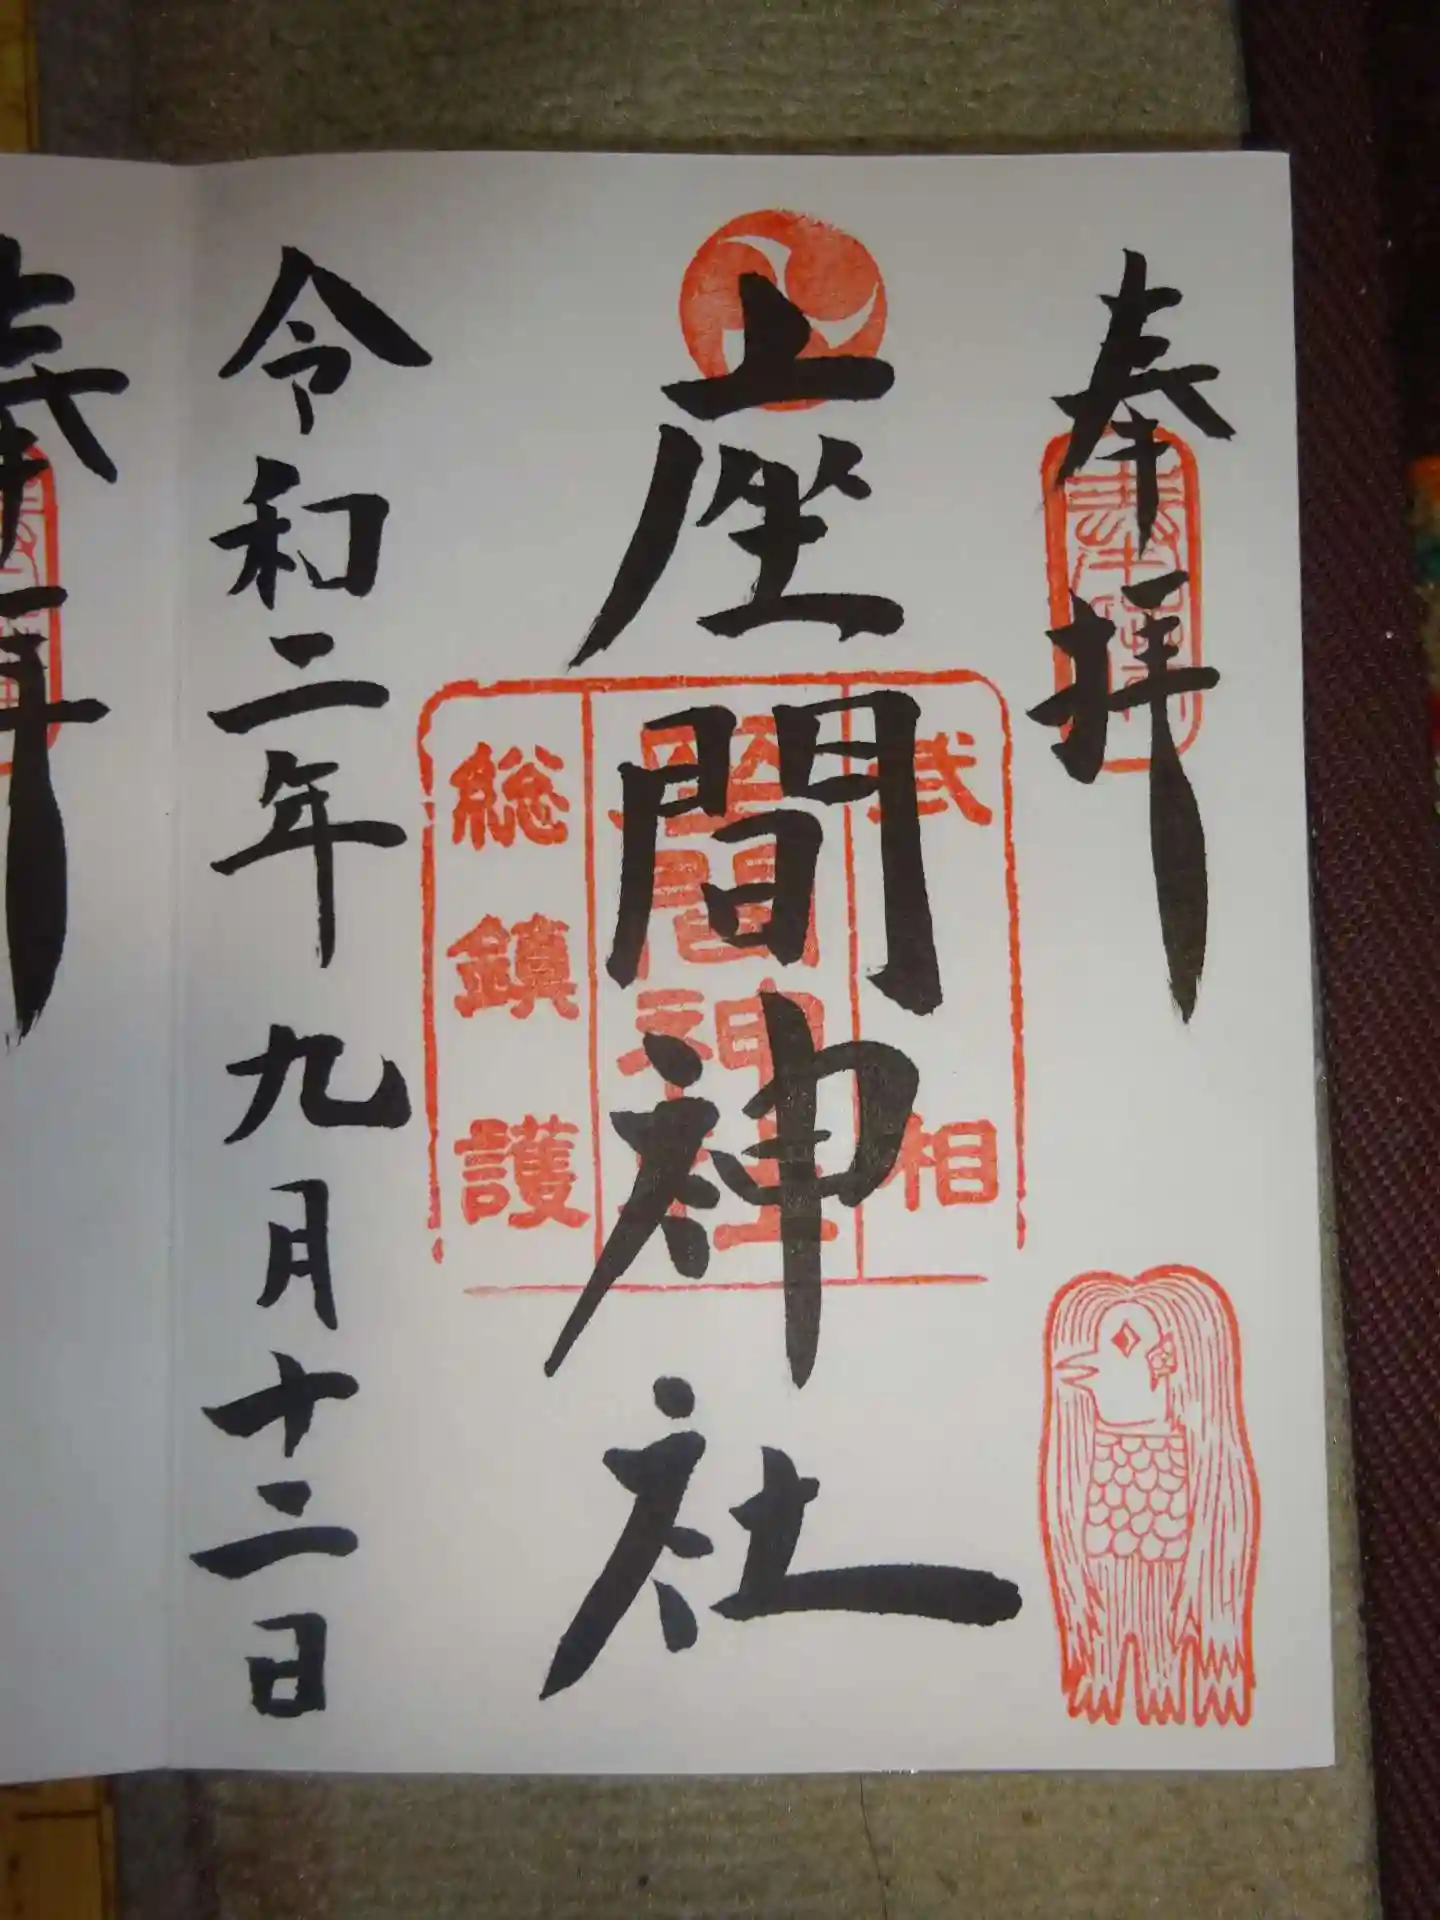 奉拝
奉拝
座間神社
弐相
座間神社
総鎮護
令和二年九月十二日
奉拝